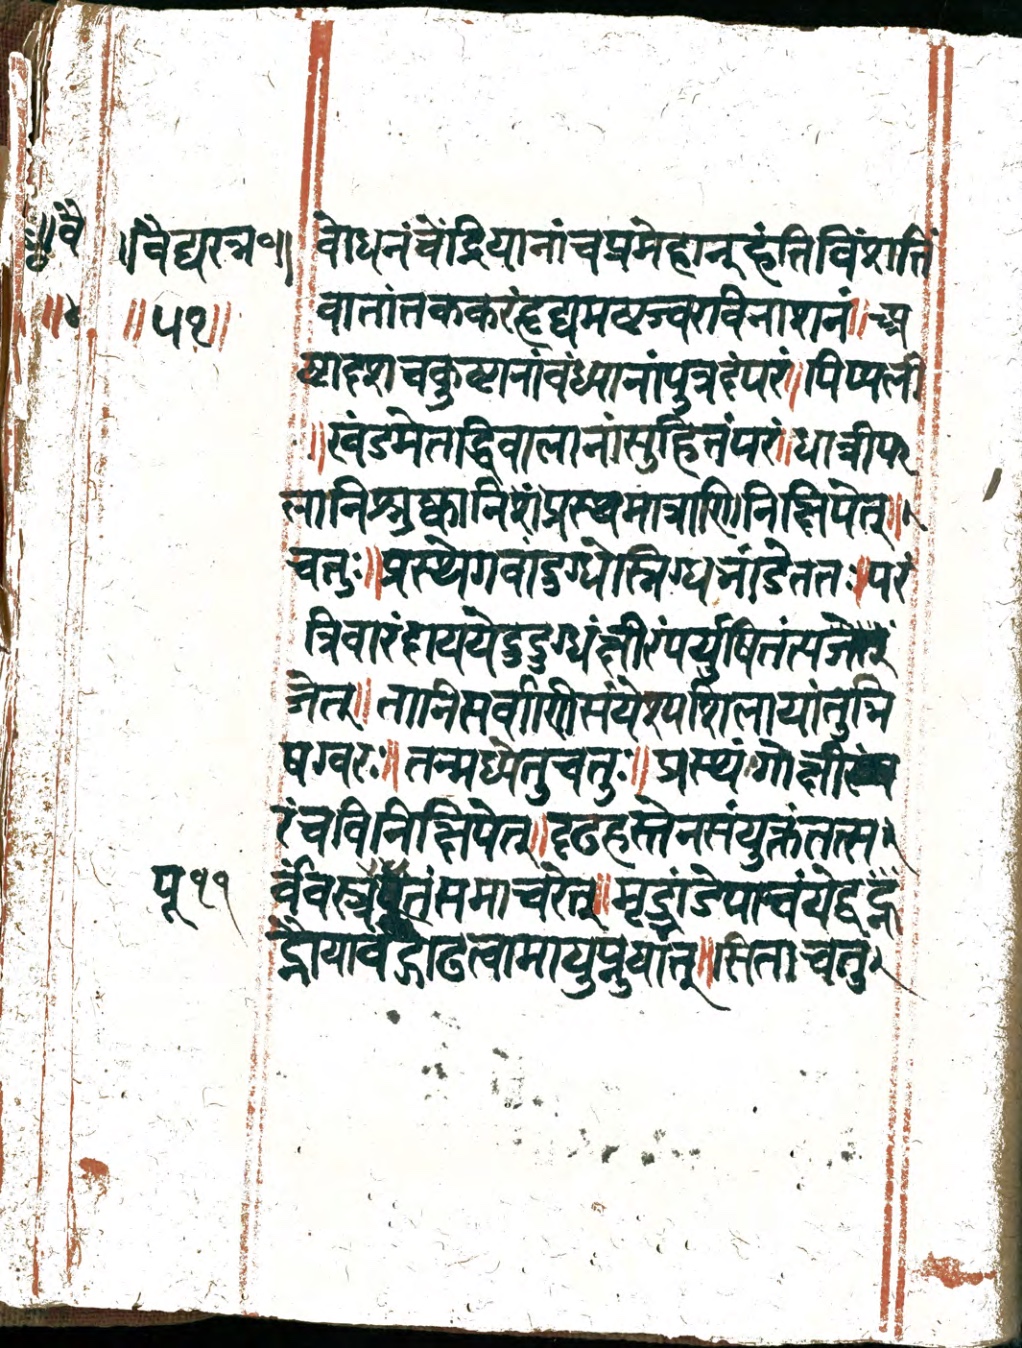 ॥वैद्यरत्न॰॥ वोधनंचेंद्रियानांचप्रमेहान्हंतिविंशातिं
॥५१॥ वातांतककरंहृद्यमष्टज्वरविनाशनं॥अ
ष्टादशचकुष्टानांवंध्यानांपुत्रदंपरं॥पिप्पली
॥खंडमेतद्धिवालानांसुहितंपरं॥धात्रीप
लानिशुष्कानिशंप्रस्थमात्राणिनिक्षिपेत्॥
चतुः॥प्रस्थेगवांदुग्धेस्निग्धभांडेततःपरं
त्रिवारंहाययेद्दुग्धंक्षीरंपर्युषितंत्यजेत्
जेत्॥तानिसर्वाणिसंपेश्यशिलायांतुभि
षग्वरः॥तन्मध्येतुचतुः॥प्रस्थंगोक्षी
रंचविनिक्षिपेत्॥दृढहस्तेनसंयुक्तंतत्स
र्वंवस्त्रपूतंसमाचरेत्॥मृद्भांडेपाचयेद्
यावद्गाढत्वामायुप्नुयात्॥सिताचतु
पू११